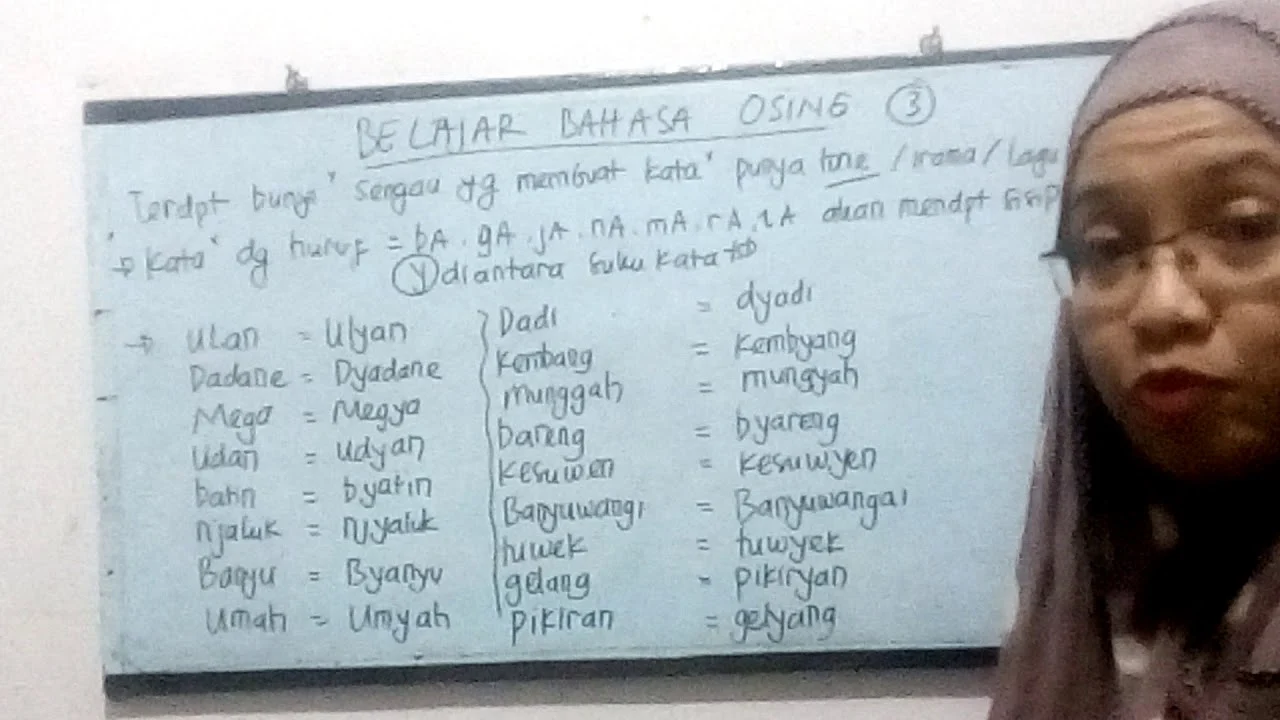 BELAJAR BAHASA OSING ③
Terdpt bunyi² sengau yg membuat kata² punya tone / irama / lagu
→ Kata² dg huruf = bA. gA. jA. nA. mA. rA. lA akan mendpt sisip
ⓨ diantara suku kata tsb
→ Ulan = Ulyan
Dadane = Dyadane
Mega = Megya
Udan = Udyan
batin = byatin
njaluk = njyaluk
Banyu = Byanyu
Umah = Umyah
Dadi = dyadi
Kembang = Kembyang
munggah = mungyah
bareng = byareng
Kesuwen = Kesuwyen
Banyuwangi = Banyuwangai
tuwek = tuwyek
gelang = pikiryan
pikiran = gelyang